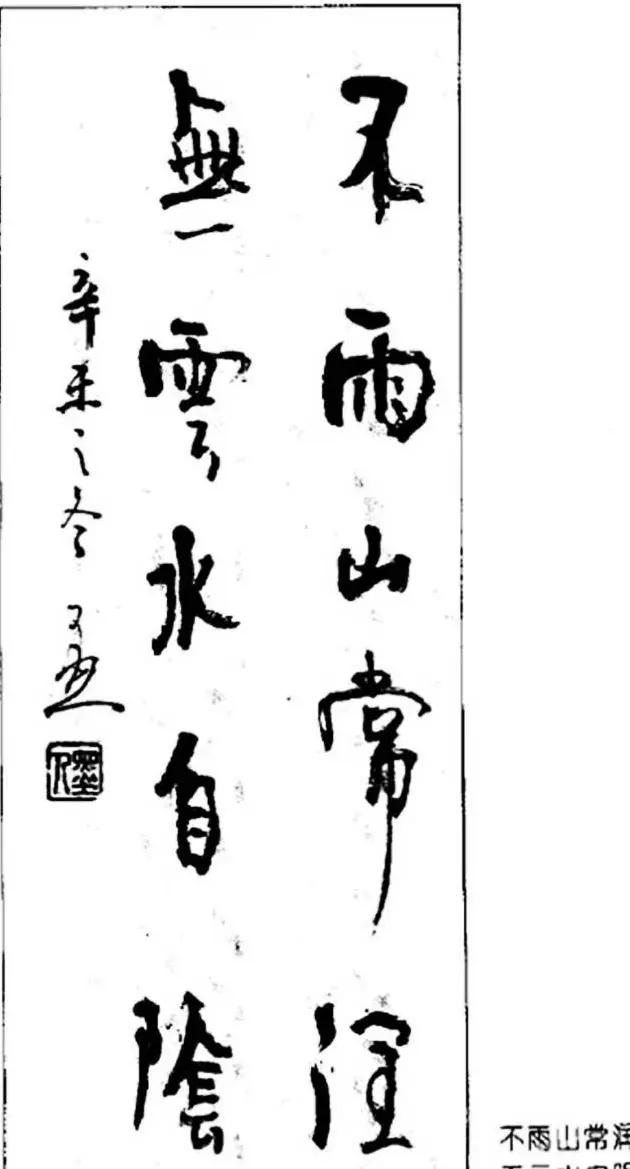 不雨山常潤
無雲水自陰
辛未之冬
不雨山常